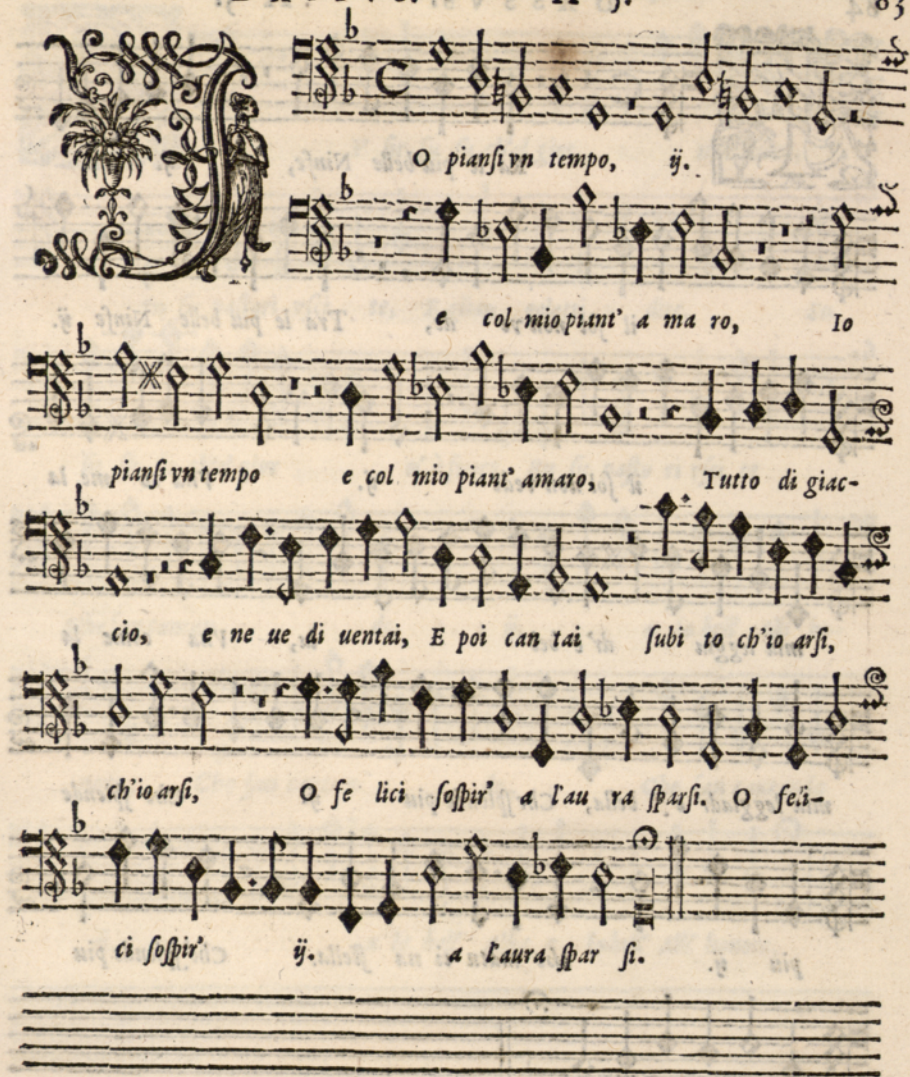 83
IO pianſi vn tempo, ij.
e col mio piant' a ma ro, Io
pianſi vn tempo e col mio piant' amaro, Tutto di giac-
cio, e ne ue di uentai, E poi can tai ſubi to ch'io arſi,
ch'io arſi, O fe lici ſoſpir' a l'au ra ſparſi. O feli-
ci ſoſpir' ij. a l'aura ſpar ſi.